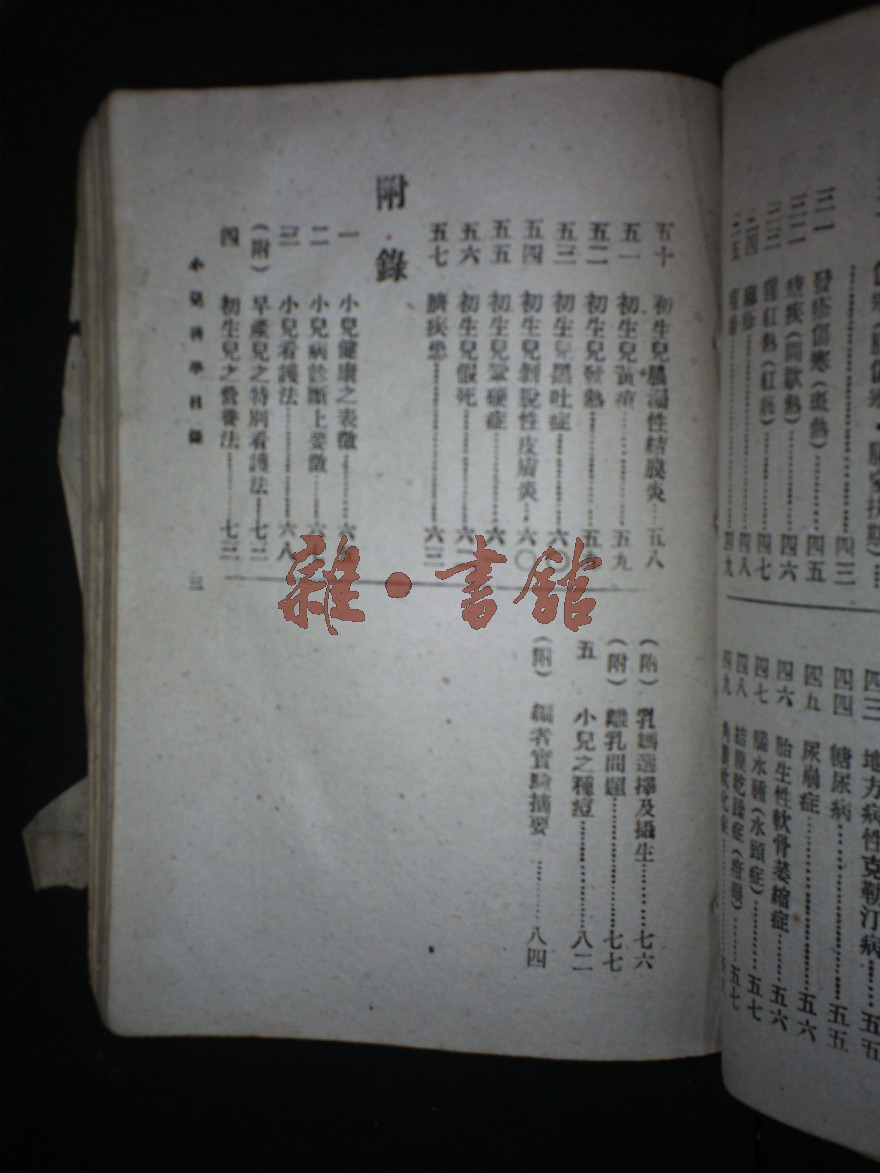 三一 發疹傷寒(斑熱)……四五
三二 瘧疾(間歇熱)……四六
三三 猩紅熱(紅痧)……四七
三四 痲疹……四八
三五……四九
四三 地方病性克勒汀病……五五
四四 糖尿病……五五
四五 尿崩症……五六
四六 胎生性軟骨萎縮症……五六
四七 腦水腫(水頭症)……五七
四八 結膜乾燥症(疳眼)……五七
四九
五十 初生兒膿漏性結膜炎……五八
五一 初生兒黃疸……五九
五二 初生兒發熱……五九
五三 初生兒嘔吐症……六〇
五四 初生兒剝脫性皮膚炎……六〇
五五 初生兒鞏硬症……六
五六 初生兒假死……六二
五七 臍疾患……六三
附錄
一 小兒健康之表徵……六
二 小兒病診斷上要徵……六
三 小兒看護法……六八
(附) 早產兒之特別看護法……七二
四 初生兒之營養法……七三
(附) 乳媽選擇及攝生……七六
(附) 離乳問題……七七
五 小兒之種痘……八二
(附) 編者實驗摘要……八四
小兒科學目錄 三
雜·書館